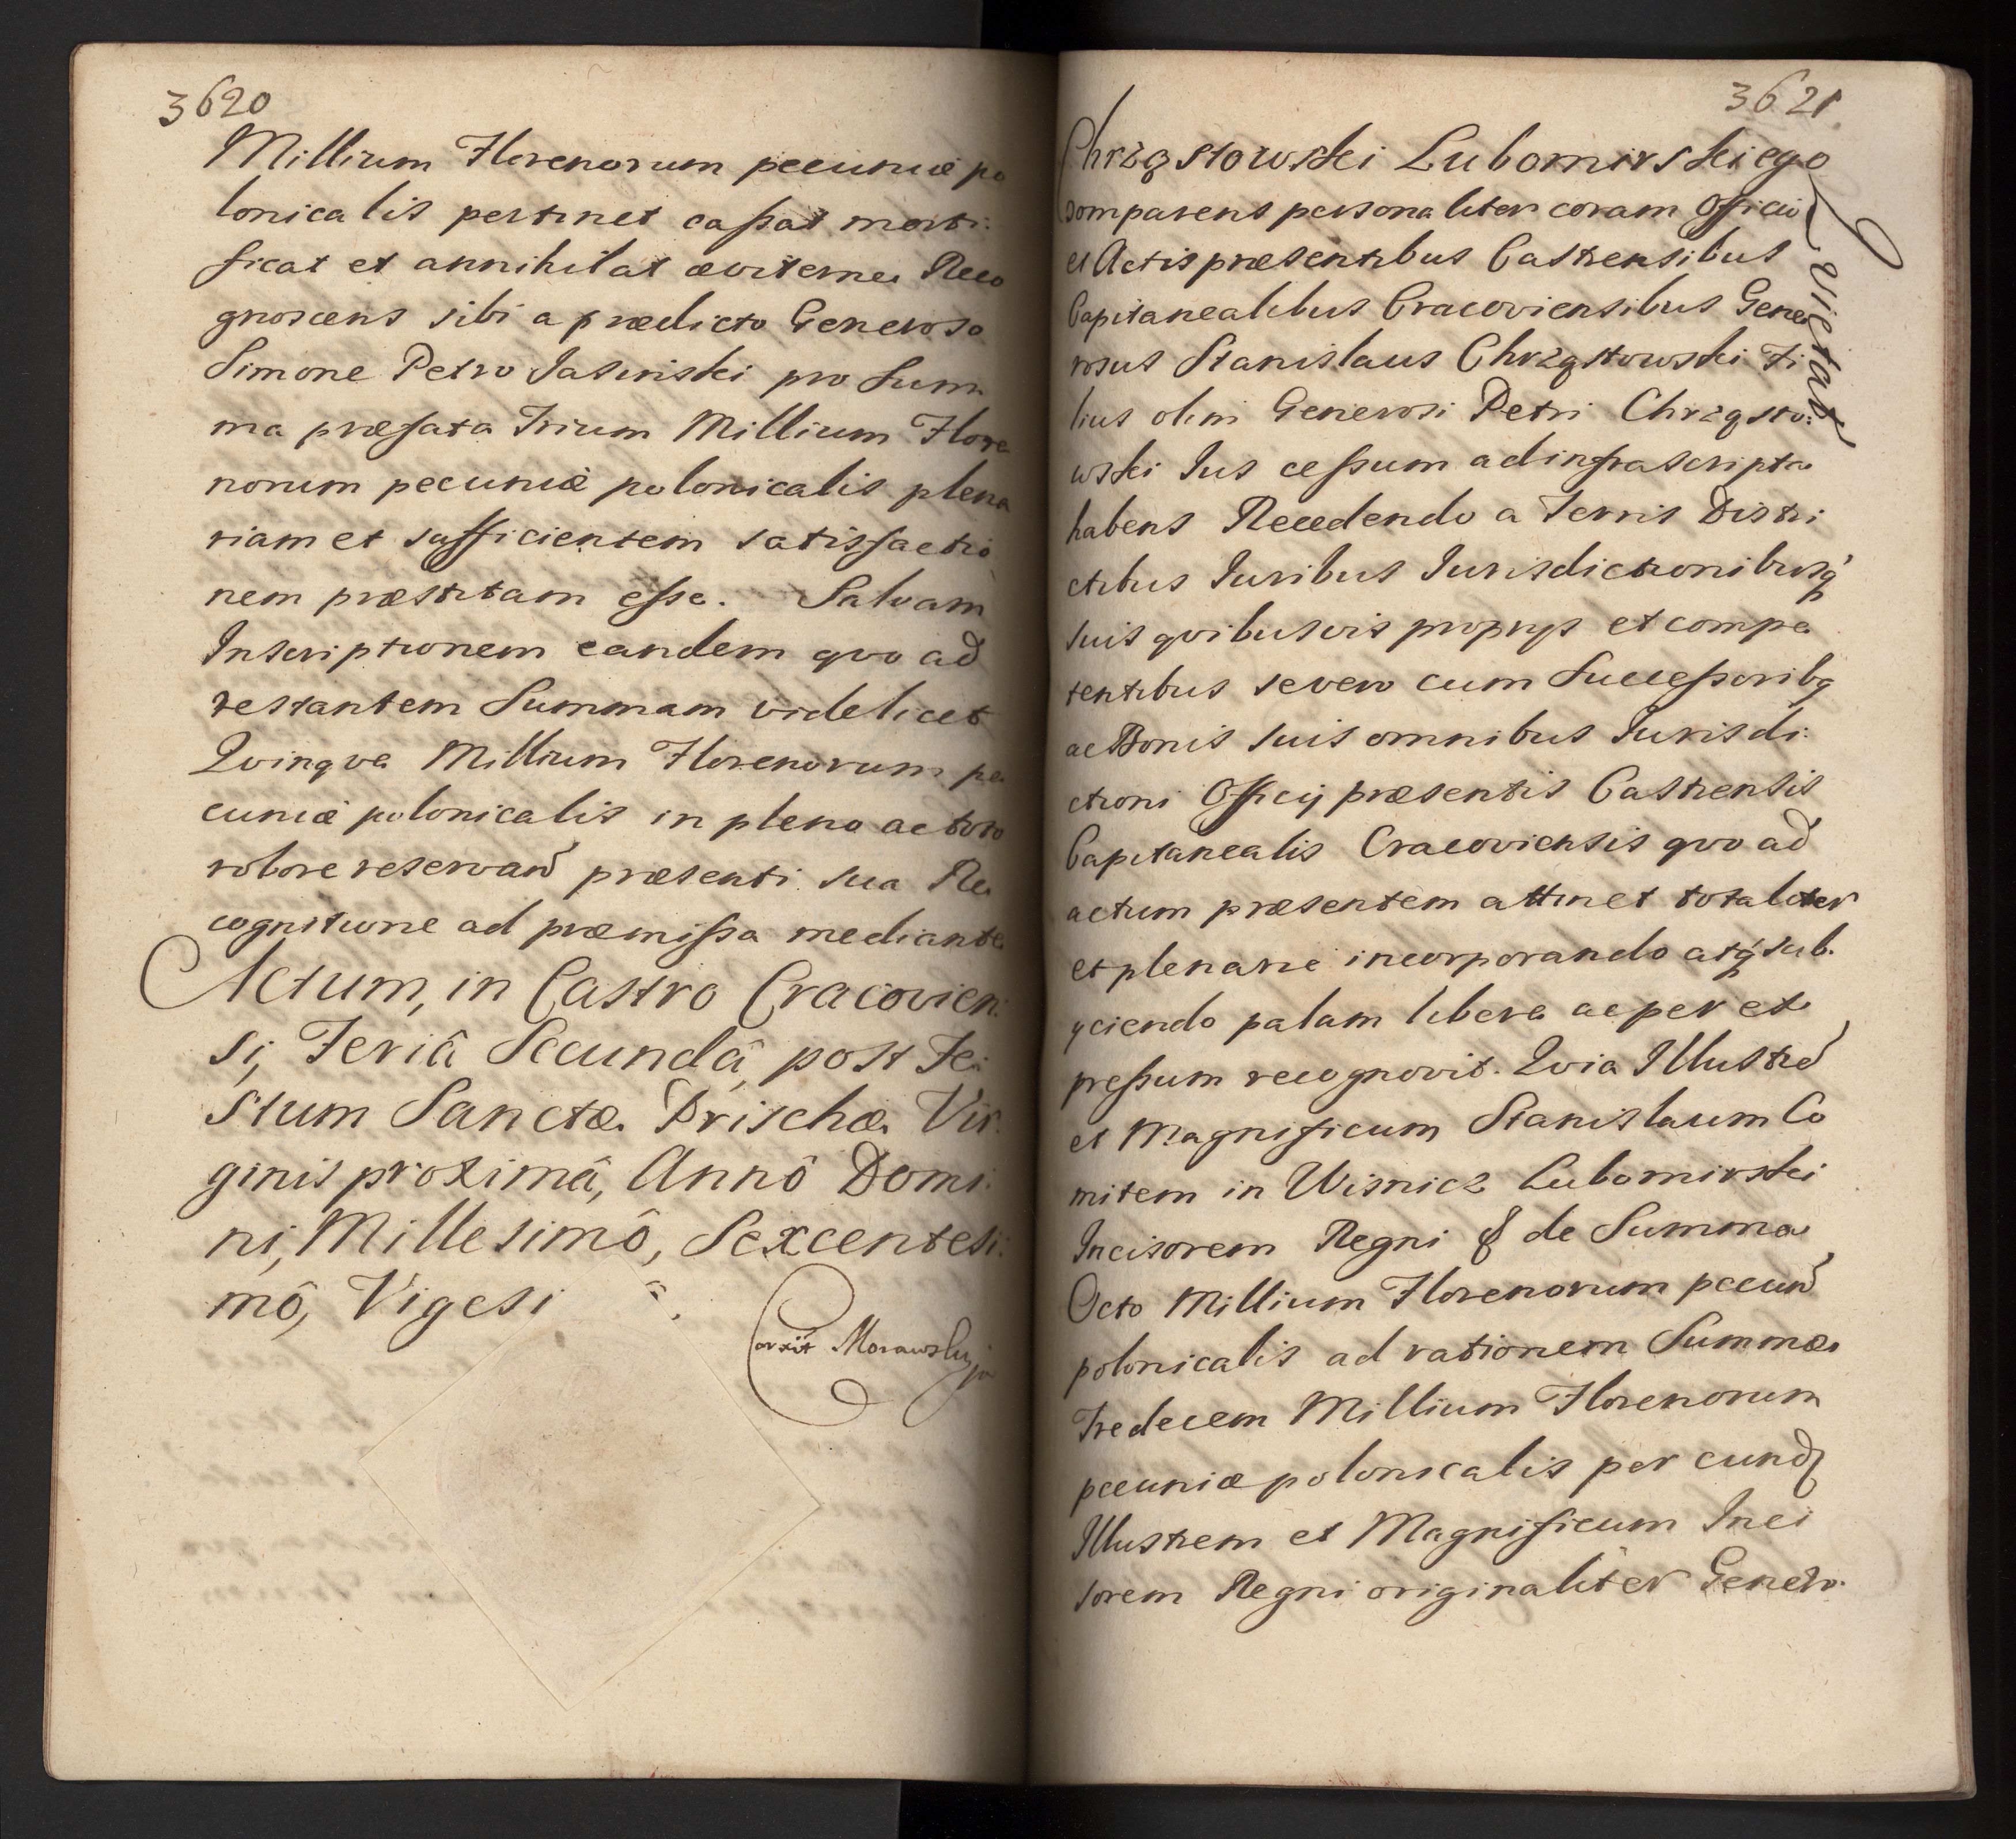 3620
Millium Florenorum pecuniæ po
lonicalis pertinet caſsat morti:
ficat et annihilat æviterne Reco
gnoscens sibi a prædicto Generoso
Simone Petro Jasinski pro Sum
ma præfata Trium Millium Flore
norum pecuniæ polonicalis plena
riam et sufficientem satisfactio
nem præstitam eſse. Salvam
Inscriptionem eandem qvo ad
restantem Summam videlicet
Qvinqve Millium Florenorum pe
cuniæ polonicalis in pleno ac toto
robore reservand præsenti sua Re
cognitione ad præmiſsa mediante
Actum, in Castro Cracovien:
si, Feriâ Secundâ, post Fe:
stum Sanctæ Prischæ Vir:
ginis proximâ, Annô Domi:
ni, Millesimô, Sexcentesi:
mô, Vigesi
Corxit Morawski
3621
Chrząstowski Lubomirskiego
Qvietat
comparens personaliter coram Officio
et Actis præsentibus Castrensibus
Capitanealibus Cracoviensibus Gene
rosus Stanislaus Chrząstowski Fi
lius olim Generosi Petri Chrząsto:
wski Ius ceſsum ad infrascripta
habens Recedendo a Terris Distri
ctibus Iuribus Iurisdictionibusq
suis qvibusvis proprijs et compe
tentibus se vero cum Succeſsoribq
ac Bonis suis omnibus Iurisdi:
ctioni Officij præsentis Castrensis
Capitanealis Cracoviensis qvo ad
actum præsentem attinet totaliter
et plenarie incorporando atq sub.
yciendo palam libere ac per ex
preſsum recognovit. Qvia Illustre
et Magnificum Stanislaum Co
mitem in Wisnicz Lubomirski
Incisorem Regni & de Summa
Octo Millium Florenorum pecun
polonicalis ad rationem Summæ
Tredecem Millium Florenorum
pecuniæ polonicalis per eund
Illustrem et Magnificum Inci
sorem Regni originaliter Genero: